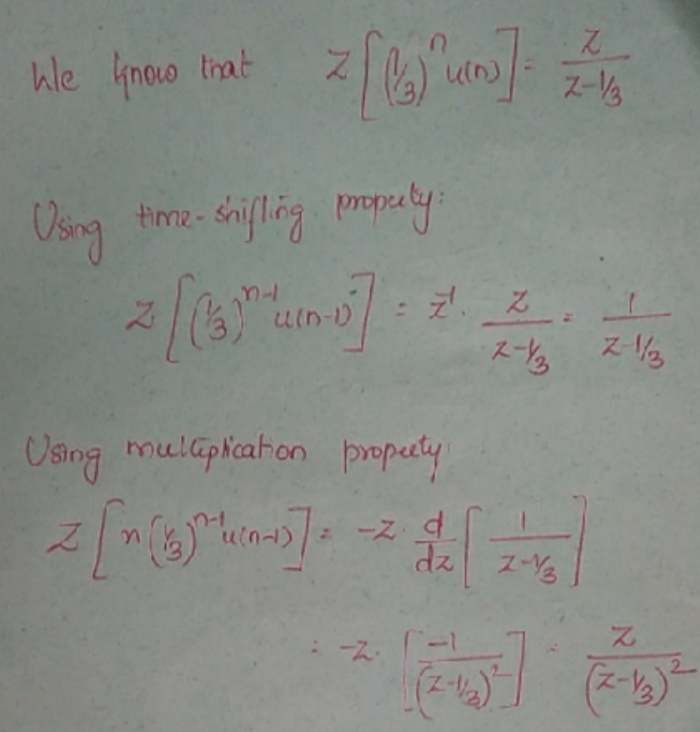 We know that Z[(1/3)^n u(n)] = z/(z-1/3)
Using time-shifting property:
Z[(1/3)^(n-1) u(n-1)] = z^-1 . z/(z-1/3) = 1/(z-1/3)
Using multiplication property:
Z[n(1/3)^(n-1) u(n-1)] = -z . d/dz [1/(z-1/3)]
= -z . [-1/(z-1/3)^2] = z/(z-1/3)^2